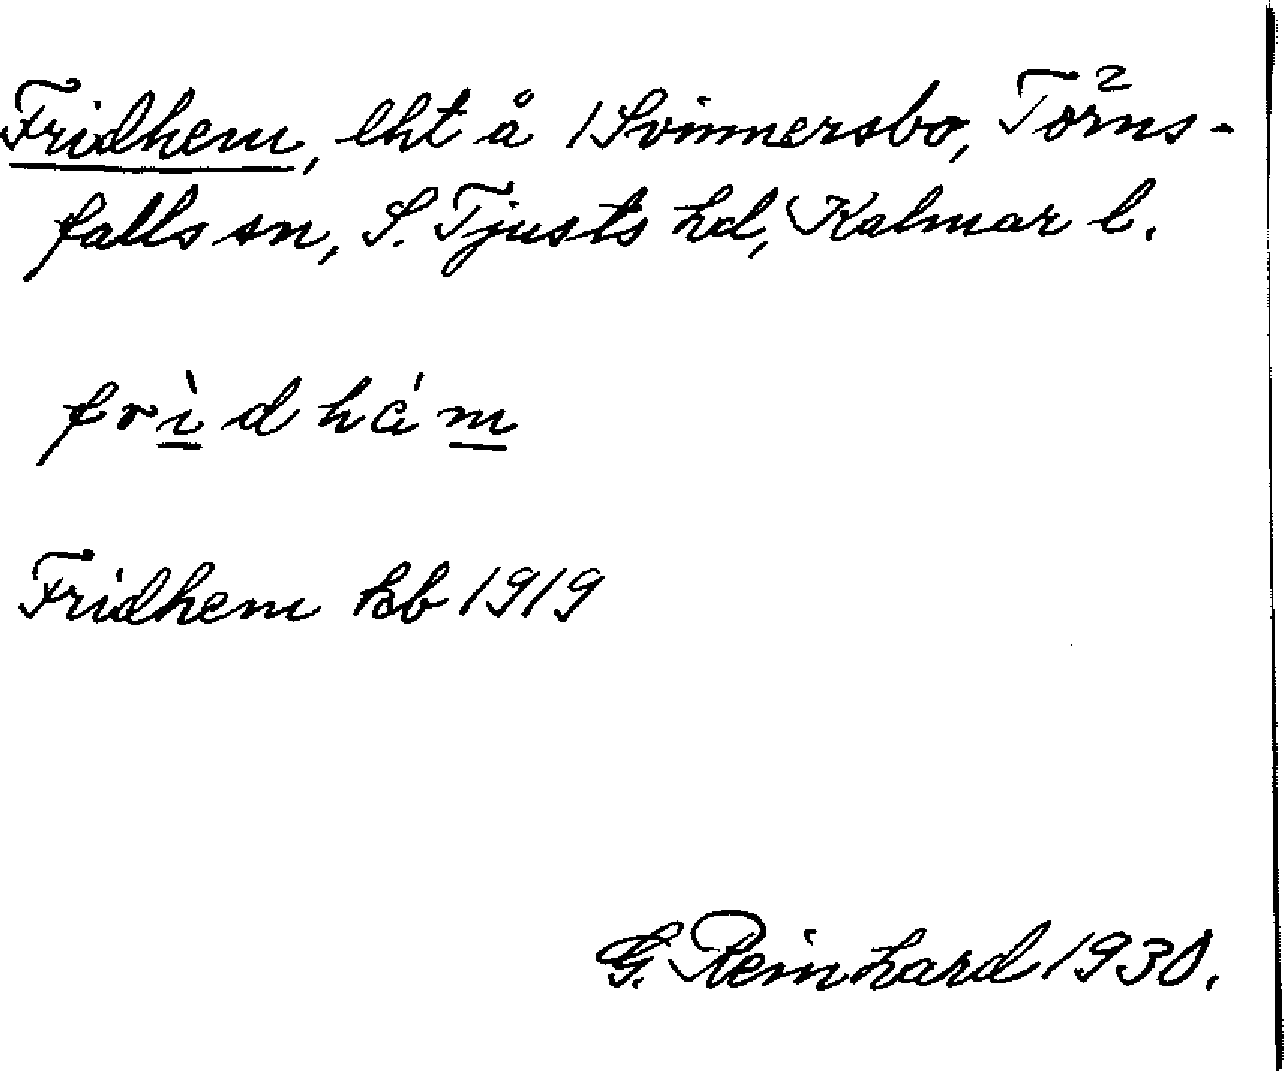 Fridhem, lht å /Svinnersbo, Törns-
falls sn, S. Tjusts hd, Kalmar l.
frìdhám
Fridhem kb 1919
G. Reinhard 1930.